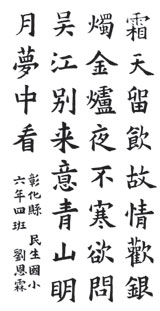 霜天留飲故情歡銀
燭金爐夜不寒欲問
吳江別来意青山明
月夢中看
彰化縣 民生國小
六年四班 劉恩霖